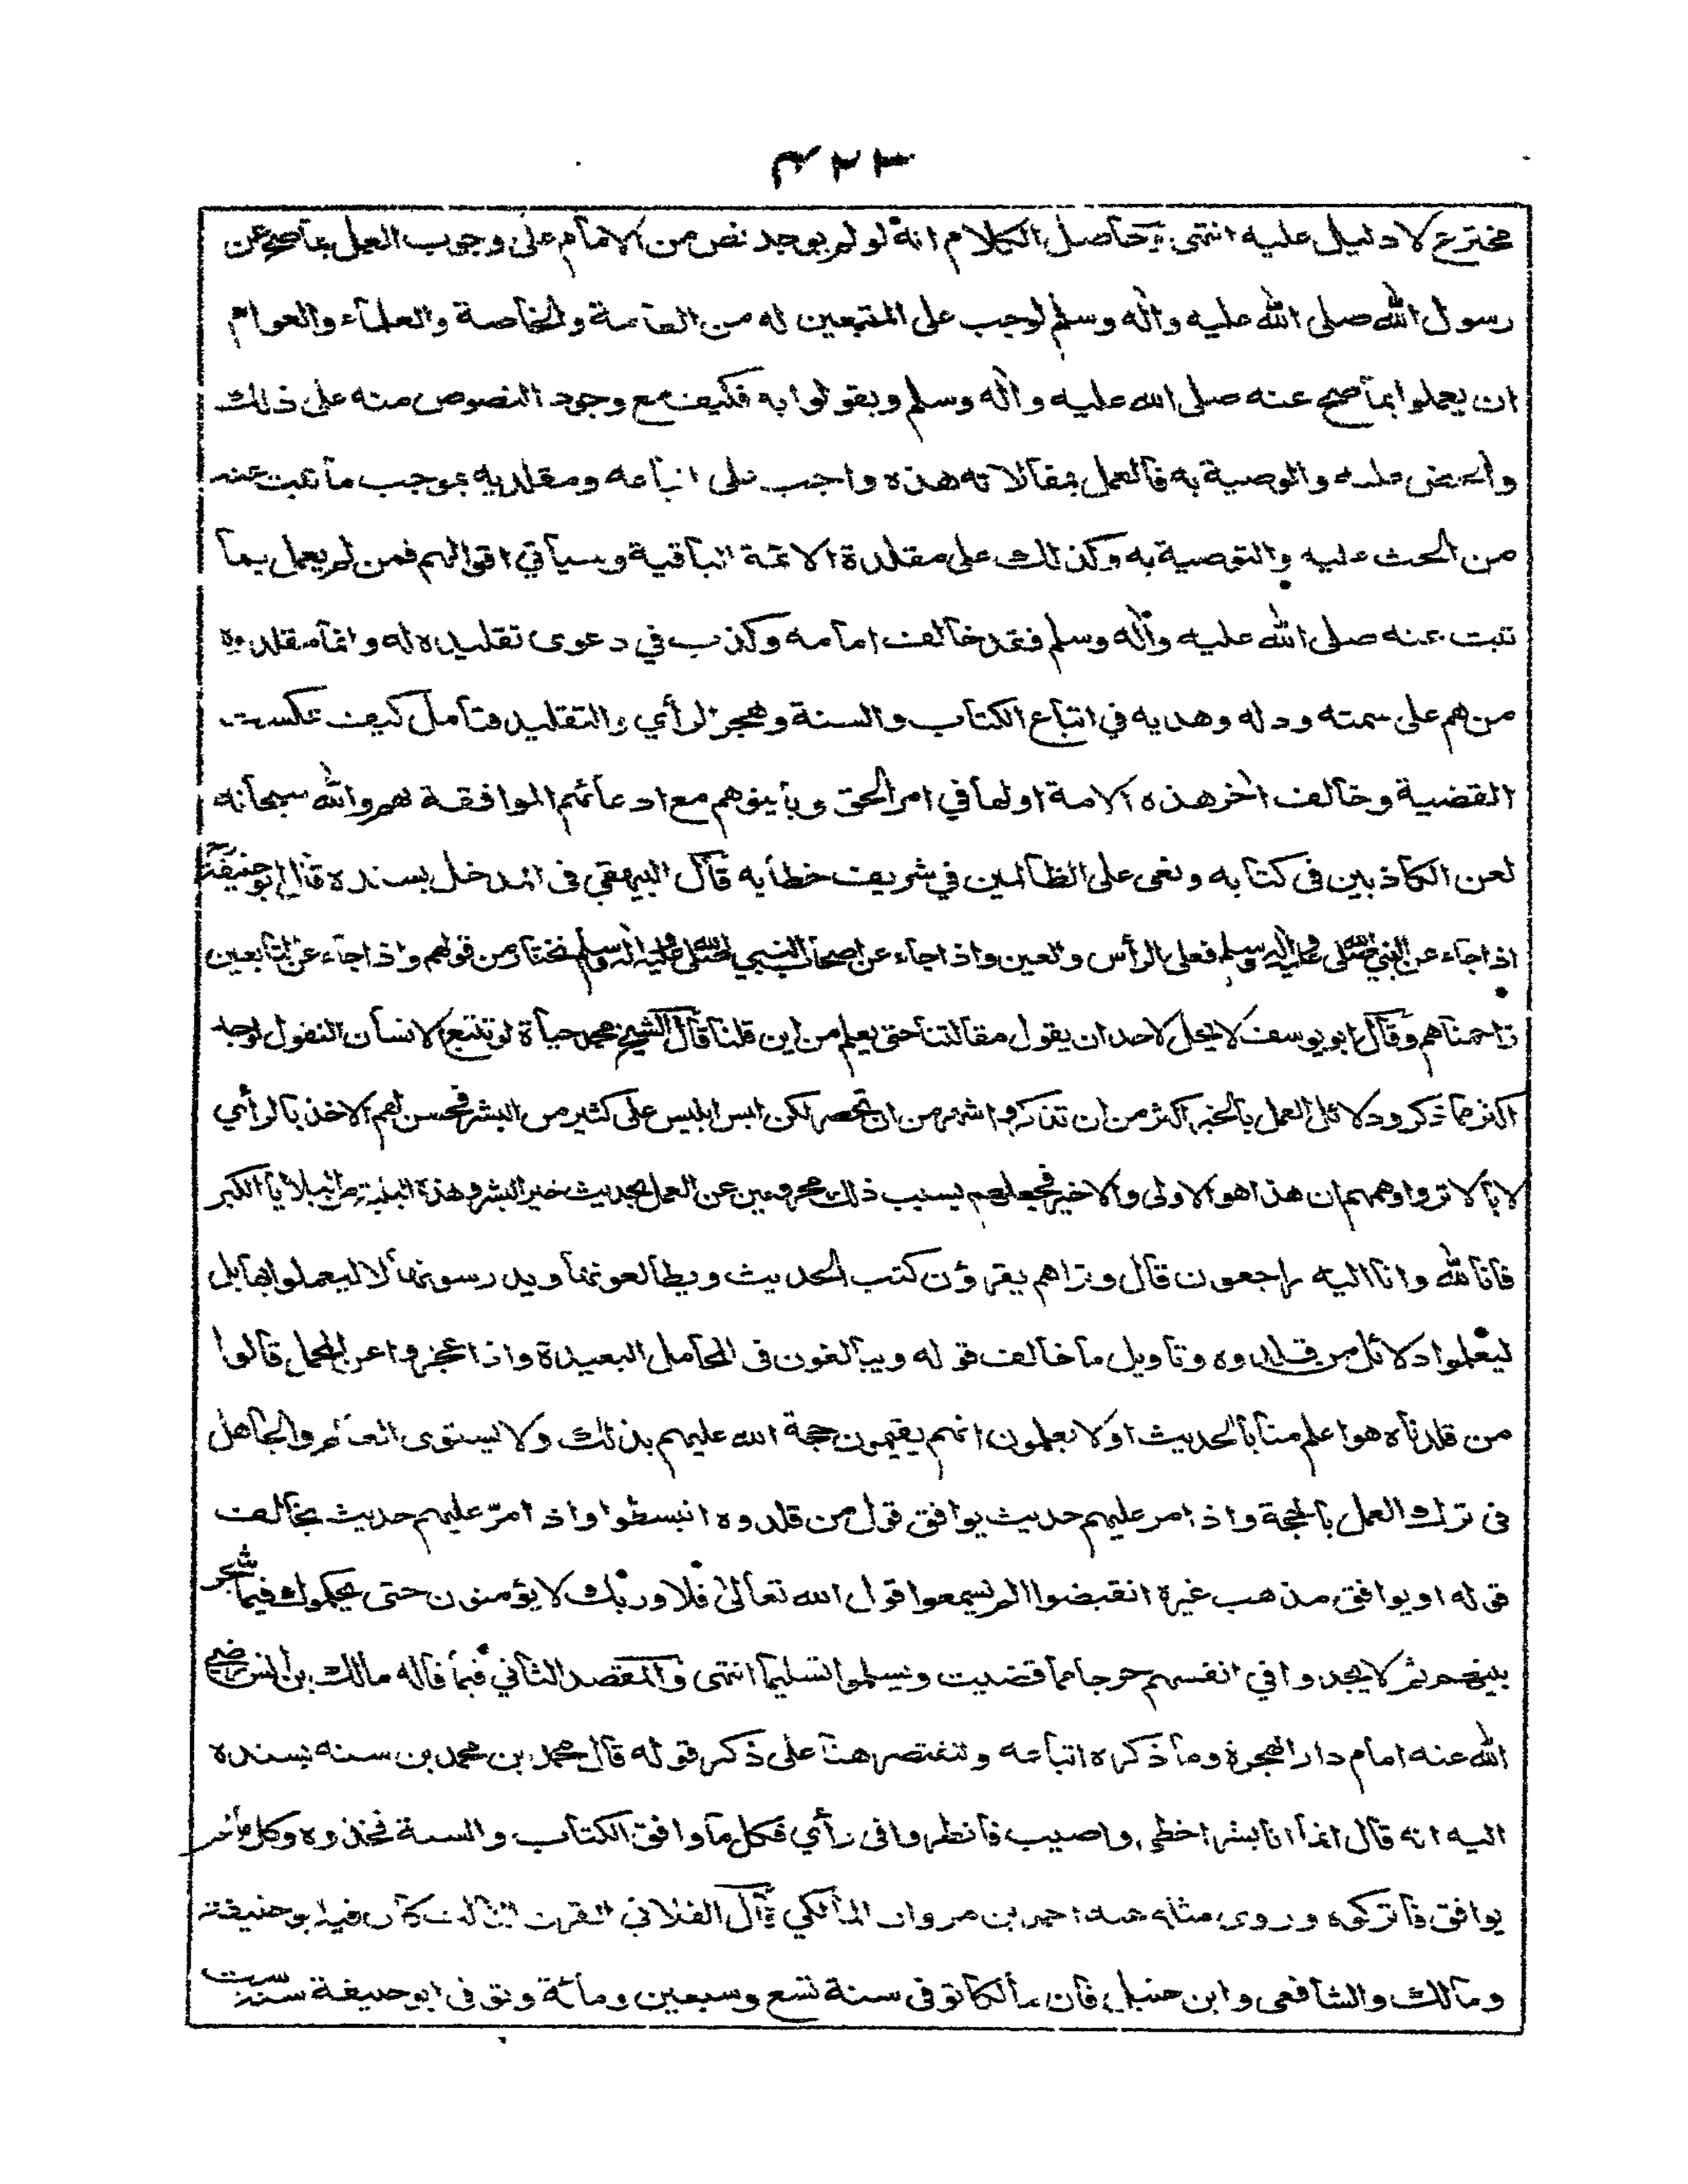 ٤٢٣
مخترع لا دليل عليه انتهى وحاصل الكلام انه لو لم يوجد نص من الامام على وجوب العمل بما صح عن
رسول الله صلى الله عليه واله وسلم لوجب على المتبعين له من العامة والخاصة والعلماء والعوام
ان يعملوا بما صح عنه صلى الله عليه واله وسلم ويقولوا به فكيف مع وجود النصوص منه على ذلك
والحض عليه والوصية به فالعمل بمقالاته هذه واجب على اتباعه ومقلديه بموجب ما ثبت عنه
من الحث عليه والتوصية به وكذلك على مقلدة الائمة الباقية وسيأتي اقوالهم فمن لم يعمل بما
ثبت عنه صلى الله عليه واله وسلم فقد خالف امامه وكذب في دعوى تقليده له وانما مقلدوه
من هم على سمته ودله وهديه في اتباع الكتاب والسنة وهجر الرأي والتقليد فتأمل كيف عكست
القضية وخالف اخر هذه الامة اولها في امر الحق وباينوهم مع ادعائهم الموافقة لهم والله سبحانه
لعن الكاذبين في كتابه ونعى على الظالمين في شريف خطابه قال البيهقي في المدخل بسنده قال ابو حنيفة
اذا جاء عن النبي صلى الله عليه واله وسلم فعلى الرأس والعين واذا جاء عن اصحاب النبي صلى الله عليه واله وسلم نختار من قولهم واذا جاء عن التابعين
زاحمناهم وقال ابو يوسف لا يحل لاحد ان يقول مقالتنا حتى يعلم من اين قلنا قال الشيخ محمد حياة لو تتبع الانسان النقول لوجد
اكثر مما ذكر ودلائل العمل بالخبر اكثر من ان تذكر واشهر من ان تحصر لكن لبس ابليس على كثير من البشر فحسن لهم الاخذ بالرأي
لا بالاثر واوهمهم ان هذا هو الاولى والاخير فجعلهم بسبب ذلك محرومين عن العمل بحديث خير البشر وهذه البلية من البلايا الكبر
فانا لله وانا اليه راجعون قال وتراهم يقرؤن كتب الحديث ويطالعونها ويدرسونها لا ليعملوا بها بل
ليعلموا دلائل من قلدوه وتاويل ما خالف قوله ويبالغون في المحامل البعيدة واذا عجزوا عن المحمل قالوا
من قلدناه هو اعلم منا بالحديث اولا يعلمون انهم يقيمون حجة الله عليهم بذلك ولا يستوى العالم والجاهل
في ترك العمل بالحجة واذا مر عليهم حديث يوافق قول من قلدوه انبسطوا واذا مرّ عليهم حديث يخالف
قوله او يوافق مذهب غيره انقبضوا الم يسمعوا قول الله تعالى فلا وربك لا يؤمنون حتى يحكموك فيما شجر
بينهم ثم لا يجدوا في انفسهم حرجا مما قضيت ويسلموا تسليما انتهى والمقصد الثاني فيما قاله مالك بن انس رضي
الله عنه امام دار الهجرة وما ذكره اتباعه ولنقتصر هنا على ذكر قوله قال محمد بن محمد بن سنه بسنده
اليه انه قال انما انا بشر اخطي واصيب فانظروا في رأي فكل ما وافق الكتاب والسنة فخذوه وكل ما لم
يوافق فاتركوه وروى مثله عنه احمد بن مروان المالكي قال الفلاني القرن الثالث كان فيه ابو حنيفة
ومالك والشافعي وابن حنبل فان مالكا توفى سنة تسع وسبعين ومائة وتوفى ابو حنيفة سنة